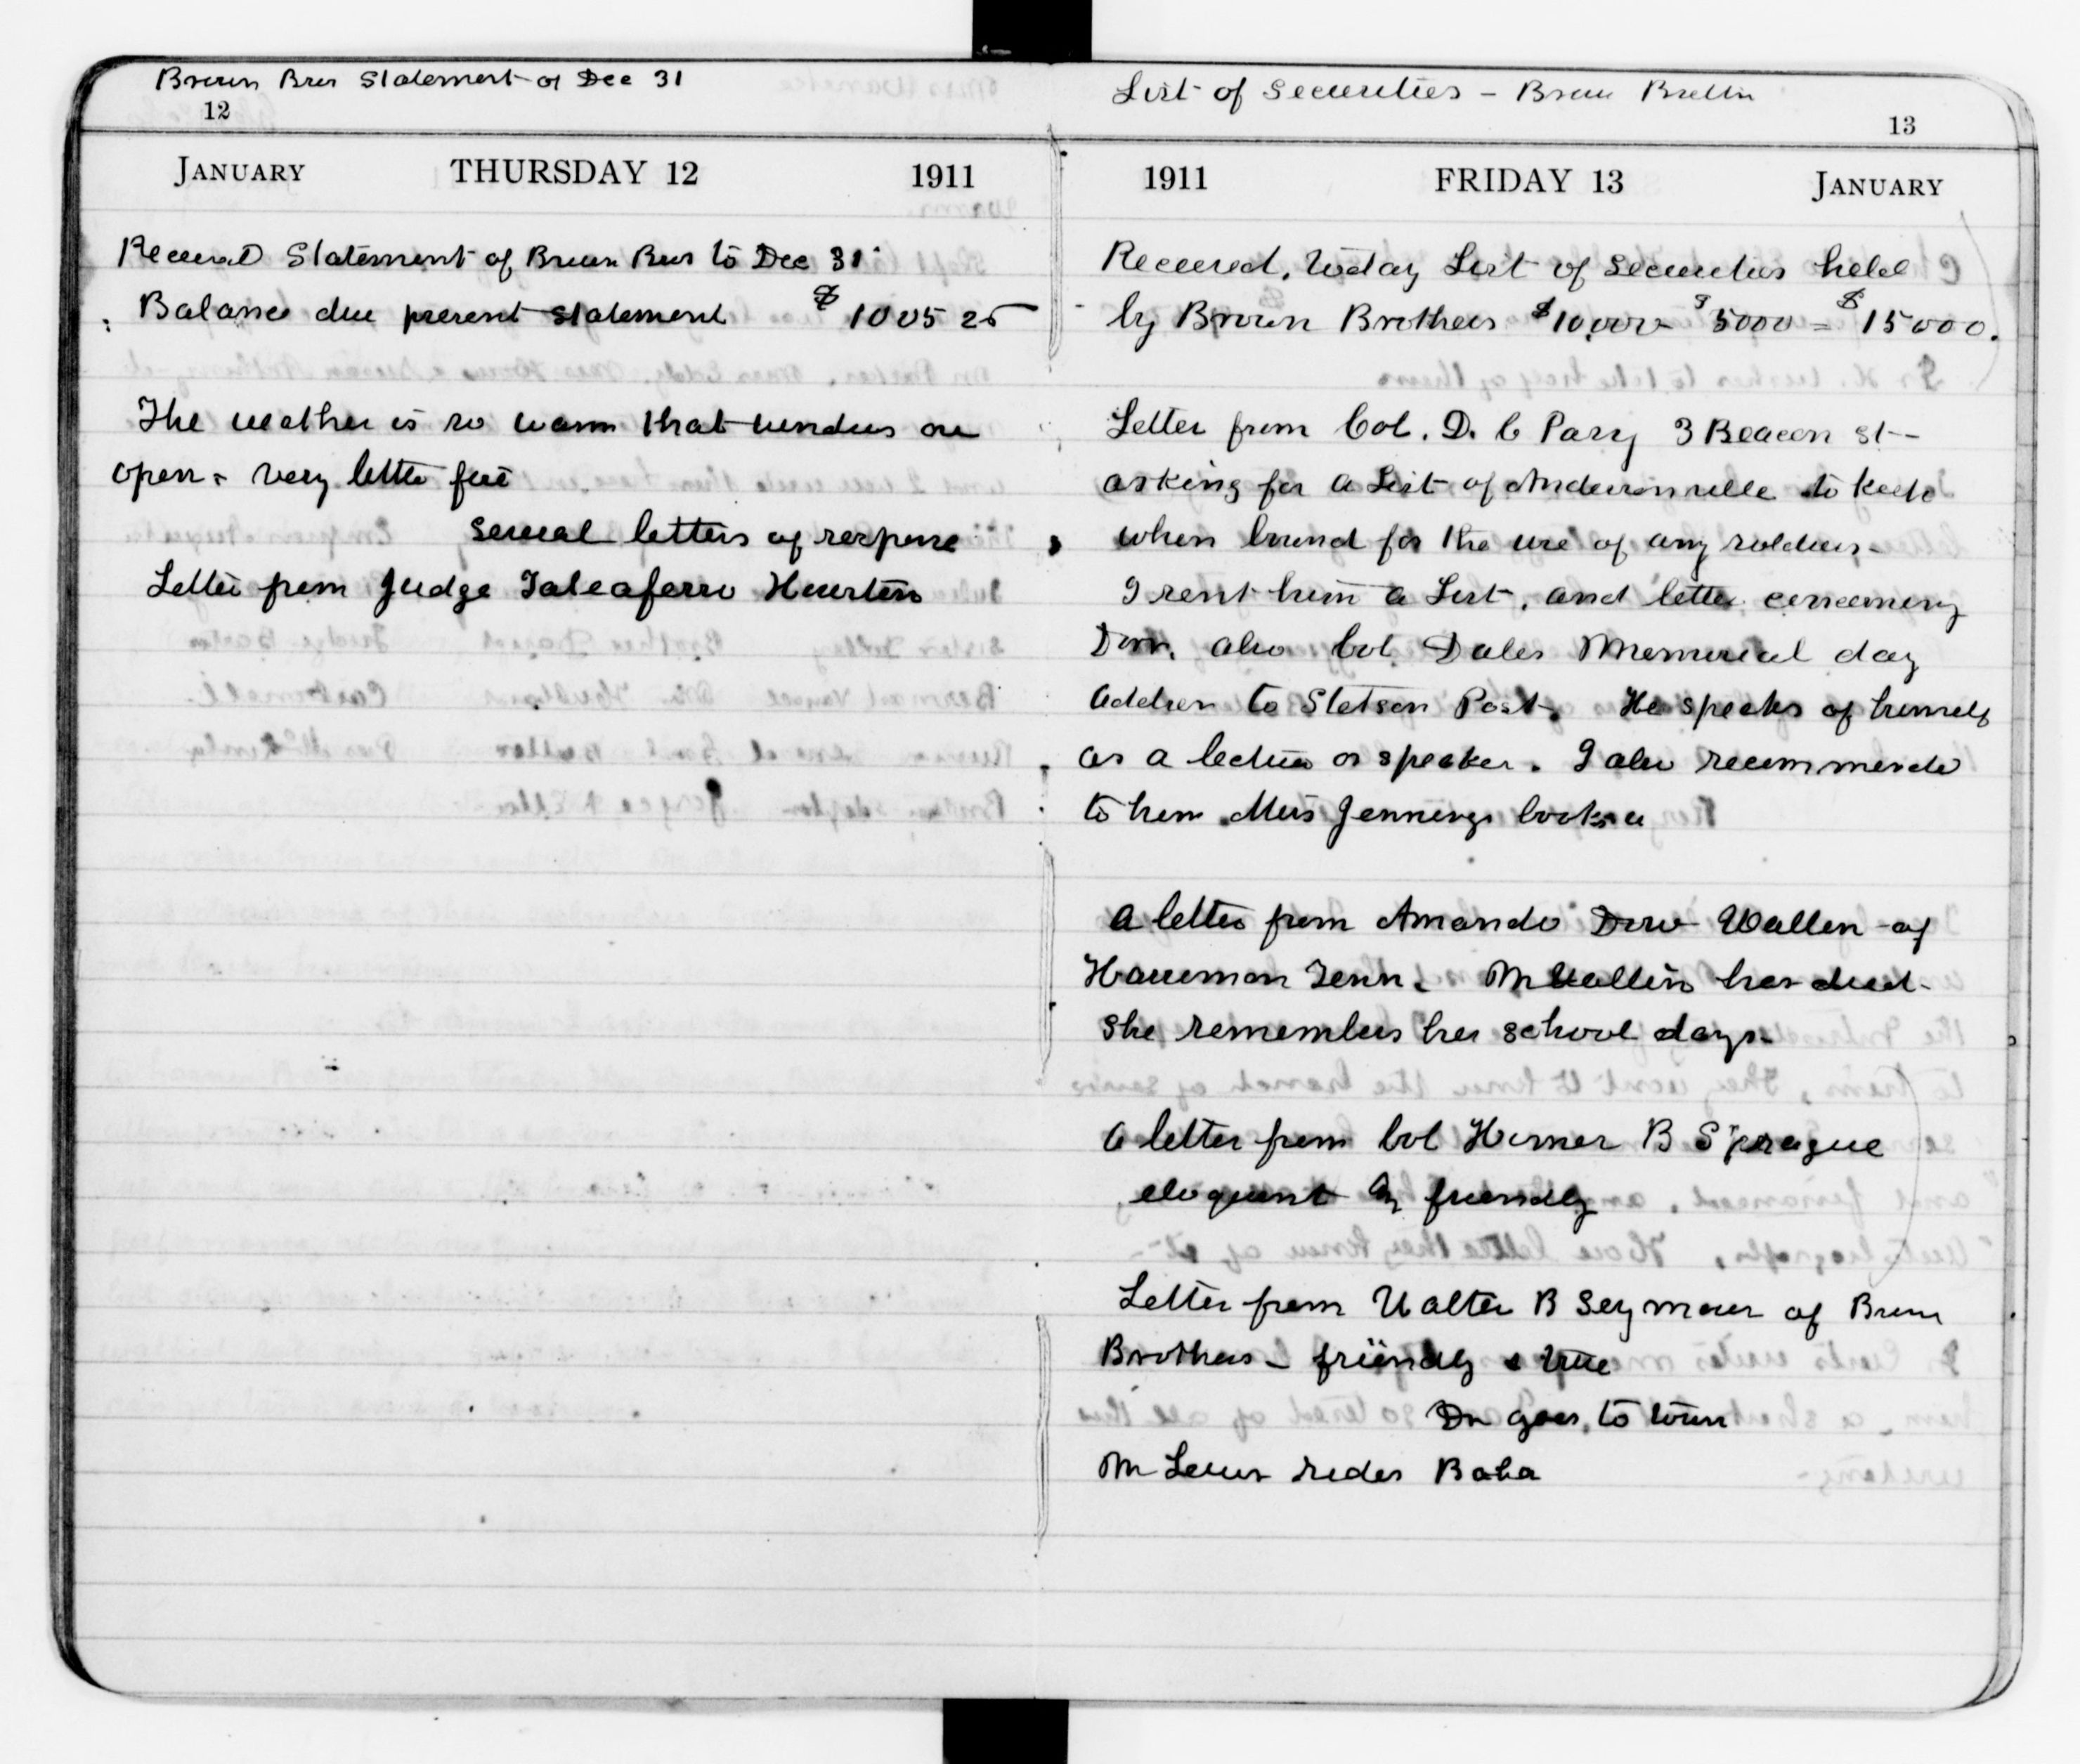 Brown Bros Statement of Dec 31
12
JANUARY THURSDAY 12 1911
Received Statement of Brown Bros to Dec 31
Balance due present statement $ 1005 25
The weather is so warm that windows are
open - very little fire
several letters of response
Letter from Judge Taleaferro Houston
List of Securities - Brown Brothers
13
1911 FRIDAY 13 JANUARY
Received, today List of securities held
by Brown Brothers $10,000 $5000 = $15000.
Letter from Col. D. C Parry 3 Beacon st -
asking for a List of Andersonville to keep
when bound for the use of any soldiers -
I sent him a List, and letter concerning
Dorr. also Col Dales Memorial day
address to Stetson Post. He speaks of himself
as a lecturer or speaker. I also recommended
to him Miss Jennings
A letter from Amanda Dow Wallen of
Harriman Tenn. Mr Wallen has died -
She remembers her school days -
A letter from Col Homer B Sprague
eloquent & friendly
Letter from Walter B Seymour of Brown
Brothers - friendly & true
Dr goes to town
Mr Lewis rides Baba